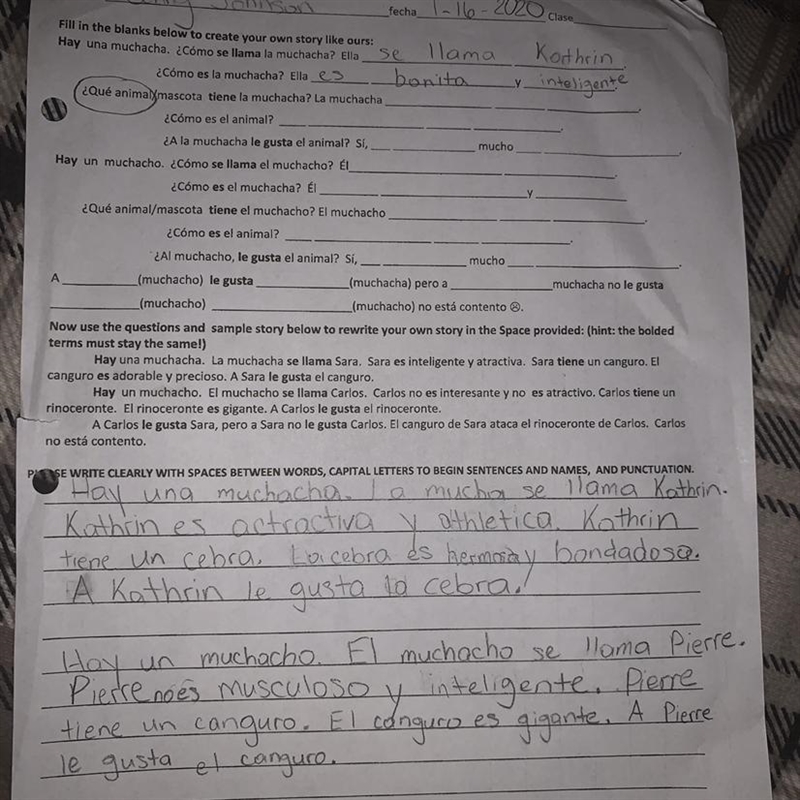 Johnson fecha 1-16-2020 Clase
Fill in the blanks below to create your own story like ours:
Hay una muchacha. ¿Cómo se llama la muchacha? Ella se llama Kathrin.
¿Cómo es la muchacha? Ella es bonita y inteligente.
¿Qué animal/mascota tiene la muchacha? La muchacha ____ ____ ____.
¿Cómo es el animal? ____ ____ ____ ____.
¿A la muchacha le gusta el animal? Sí, ____ ____ mucho ____ ____.
Hay un muchacho. ¿Cómo se llama el muchacho? Él ____ ____ ____.
¿Cómo es el muchacha? Él ____ ____ y ____.
¿Qué animal/mascota tiene el muchacho? El muchacho ____ ____ ____.
¿Cómo es el animal? ____ ____ ____ ____.
¿Al muchacho, le gusta el animal? Sí, ____ ____ mucho ____ ____.
A ____ (muchacho) le gusta ____ (muchacha) pero a ____ muchacha no le gusta
____ (muchacho) ____ (muchacho) no está contento ☹.
Now use the questions and sample story below to rewrite your own story in the Space provided: (hint: the bolded
terms must stay the same!)
Hay una muchacha. La muchacha se llama Sara. Sara es inteligente y atractiva. Sara tiene un canguro. El
canguro es adorable y precioso. A Sara le gusta el canguro.
Hay un muchacho. El muchacho se llama Carlos. Carlos no es interesante y no es atractivo. Carlos tiene un
rinoceronte. El rinoceronte es gigante. A Carlos le gusta el rinoceronte.
A Carlos le gusta Sara, pero a Sara no le gusta Carlos. El canguro de Sara ataca el rinoceronte de Carlos. Carlos
no está contento.
WRITE CLEARLY WITH SPACES BETWEEN WORDS, CAPITAL LETTERS TO BEGIN SENTENCES AND NAMES, AND PUNCTUATION.
Hay una muchacha. La mucha se llama Kathrin.
Kathrin es actractiva y athletica. Kathrin
tiene un cebra. La cebra es hermosa y bondadosa.
A Kathrin le gusta la cebra.
Hay un muchacho. El muchacho se llama Pierre.
Pierre no es musculoso y inteligente. Pierre
tiene un canguro. El canguro es gigante. A Pierre
le gusta el canguro.